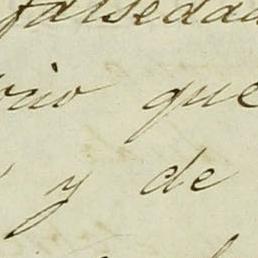 falsedad
que
y de